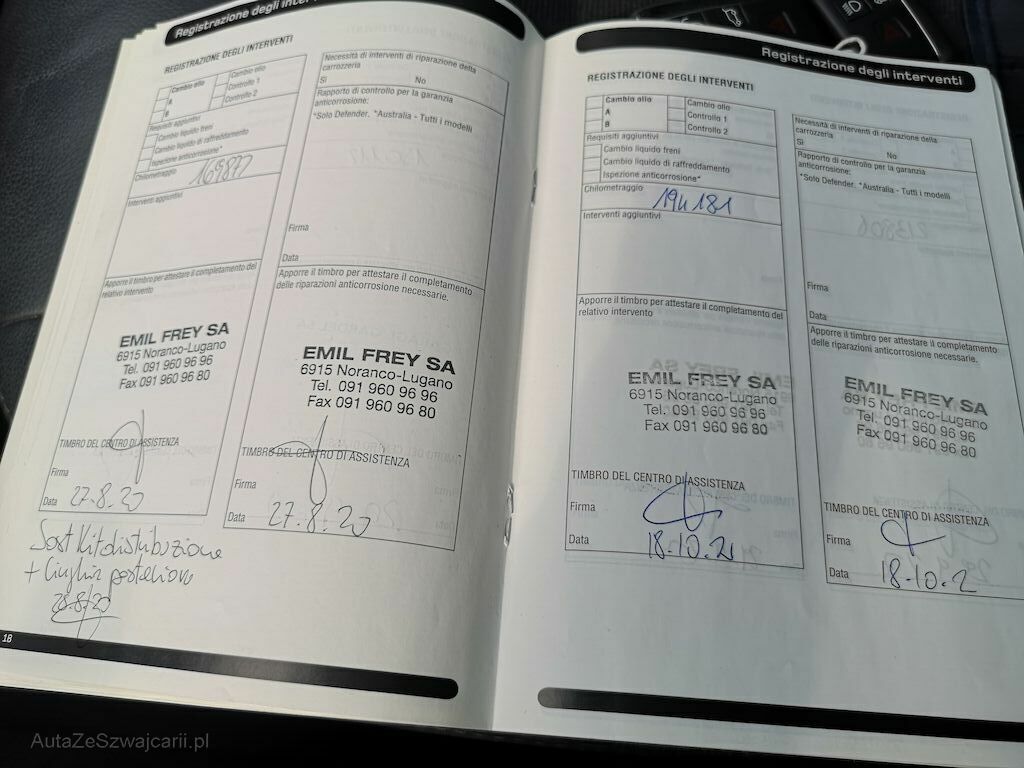 Registrazione degli interv
REGISTRAZIONE DEGLI INTERVENTI
Cambio olio
A
B
Cambio olio
Controllo 1
Controllo 2
Requisiti aggiuntivi
Cambio liquido freni
Cambio liquido di raffreddamento
Ispezione anticorrosione*
Chilometraggio 169877
Interventi aggiuntivi
Apporre il timbro per attestare il completamento del
relativo intervento
EMIL FREY SA
6915 Noranco-Lugano
Tel. 091 960 96 96
Fax 091 960 96 80
TIMBRO DEL CENTRO DI ASSISTENZA
Firma
Data 27.8.20
Sost Kit distribuzione
+ Cinghia posteriore
28.8.20
18
Necessità di interventi di riparazione della
carrozzeria
Sì No
Rapporto di controllo per la garanzia
anticorrosione:
*Solo Defender. *Australia - Tutti i modelli
Firma
Data
Apporre il timbro per attestare il completamento
delle riparazioni anticorrosione necessarie.
EMIL FREY SA
6915 Noranco-Lugano
Tel. 091 960 96 96
Fax 091 960 96 80
TIMBRO DEL CENTRO DI ASSISTENZA
Firma
Data 27.8.20
Registrazione degli interventi
REGISTRAZIONE DEGLI INTERVENTI
Cambio olio
A
B
Cambio olio
Controllo 1
Controllo 2
Requisiti aggiuntivi
Cambio liquido freni
Cambio liquido di raffreddamento
Ispezione anticorrosione*
Chilometraggio 194181
Interventi aggiuntivi
Apporre il timbro per attestare il completamento del
relativo intervento
EMIL FREY SA
6915 Noranco-Lugano
Tel. 091 960 96 96
Fax 091 960 96 80
TIMBRO DEL CENTRO DI ASSISTENZA
Firma
Data 18.10.21
Necessità di interventi di riparazione della
carrozzeria
Sì No
Rapporto di controllo per la garanzia
anticorrosione:
*Solo Defender. *Australia - Tutti i modelli
Firma
Data
Apporre il timbro per attestare il completamento
delle riparazioni anticorrosione necessarie.
EMIL FREY SA
6915 Noranco-Lugano
Tel. 091 960 96 96
Fax 091 960 96 80
TIMBRO DEL CENTRO DI ASSISTENZA
Firma
Data 18.10.2
AutaZeSzwajcarii.pl